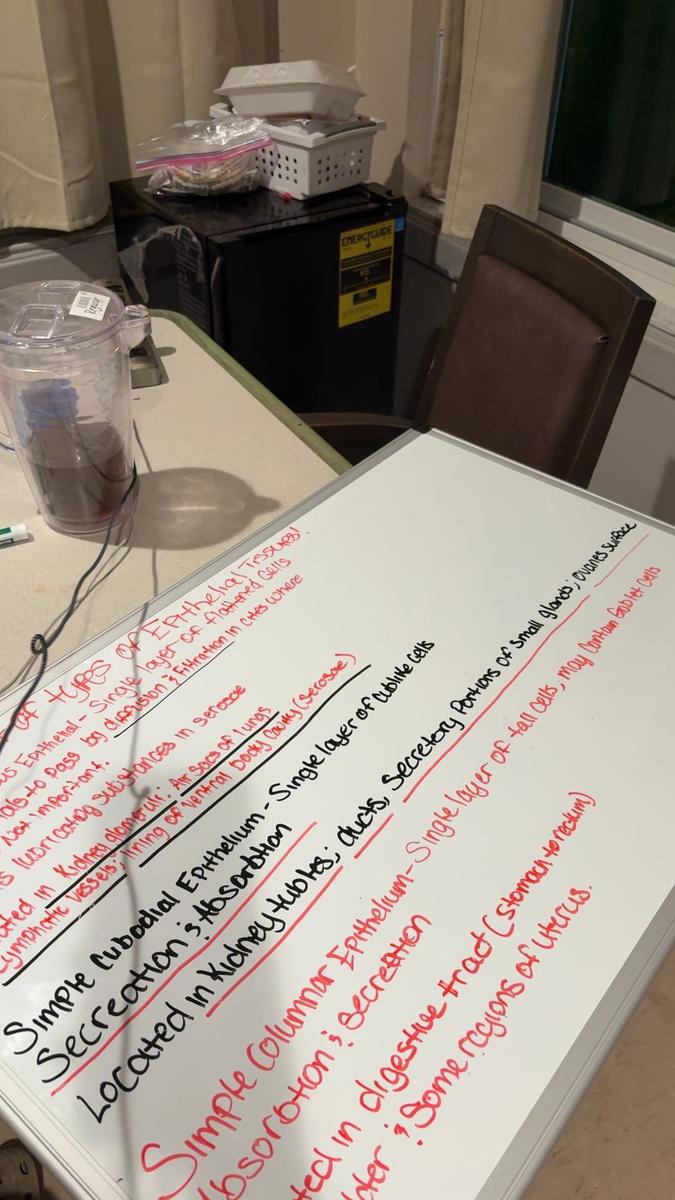 ENERGYGUIDE
of types of Epithelial Tissues!
Epithelial - Single layer of flattened cells
to pass by diffusion & filtration in cites where
not important.
lubricating substances in serosae
in Kidney glomeruli; Air sacs of lungs
Lymphatic vessels; lining of ventral Body cavity (serosae)
Simple Cubodial Epithelium - Single layer of cublike cells
Secreation & Absorbtion
Located in Kidney tubles; ducts, Secretory Portions of small glands; ovaries surface
Simple Columnar Epithelium - Single layer of tall cells, may contain Goblet cells
Absorbtion & Secreation
in digestive tract (stomach to rectum)
& Some regions of uterus.